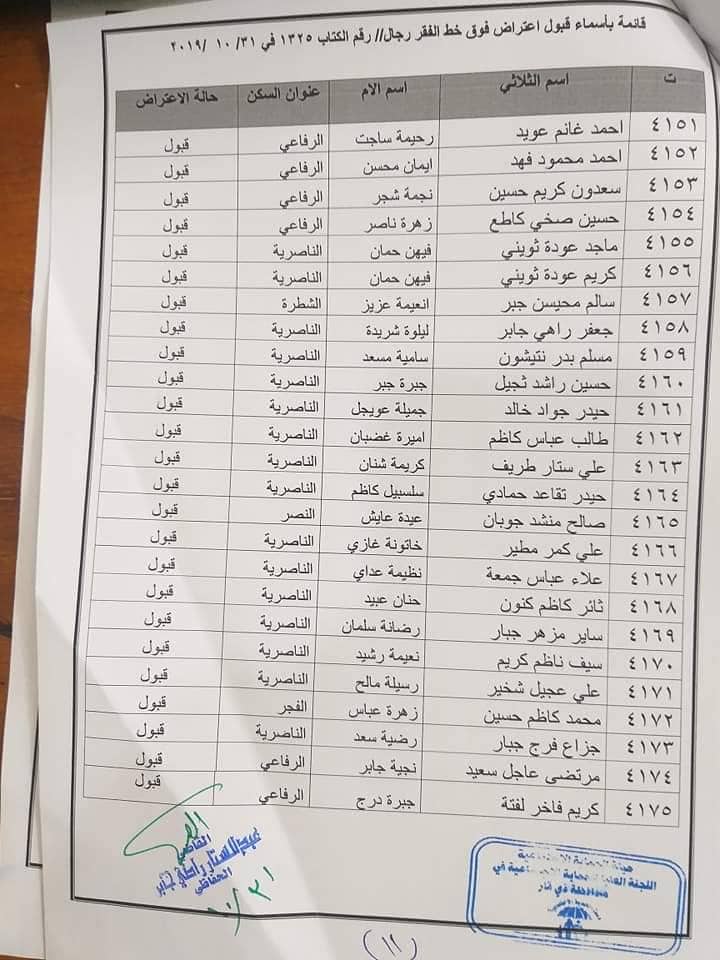 قائمة بأسماء قبول اعتراض فوق خط الفقر رجال// رقم الكتاب ١٣٢٥ في ٣١/ ١٠ /٢٠١٩
ت اسم الثلاثي اسم الام عنوان السكن حالة الاعتراض
٤١٥١ احمد غانم عويد رحيمة ساجت الرفاعي قبول
٤١٥٢ احمد محمود فهد ايمان محسن الرفاعي قبول
٤١٥٣ سعدون كريم حسين نجمة شجر الرفاعي قبول
٤١٥٤ حسين صخي كاطع زهرة ناصر الرفاعي قبول
٤١٥٥ ماجد عودة ثويني فيهن حمان الناصرية قبول
٤١٥٦ كريم عودة ثويني فيهن حمان الناصرية قبول
٤١٥٧ سالم محيسن جبر انعيمة عزيز الشطرة قبول
٤١٥٨ جعفر راهي جابر ليلوة شريدة الناصرية قبول
٤١٥٩ مسلم بدر نتيشون سامية مسعد الناصرية قبول
٤١٦٠ حسين راشد ثجيل جبرة جبر الناصرية قبول
٤١٦١ حيدر جواد خالد جميلة عويجل الناصرية قبول
٤١٦٢ طالب عباس كاظم اميرة غضبان الناصرية قبول
٤١٦٣ علي ستار طريف كريمة شنان الناصرية قبول
٤١٦٤ حيدر تقاعد حمادي سلسبيل كاظم الناصرية قبول
٤١٦٥ صالح منشد جوبان عيدة عايش النصر قبول
٤١٦٦ علي كمر مطير خاتونة غازي الناصرية قبول
٤١٦٧ علاء عباس جمعة نظيمة عداي الناصرية قبول
٤١٦٨ ثائر كاظم كنون حنان عبيد الناصرية قبول
٤١٦٩ ساير مزهر جبار رضانة سلمان الناصرية قبول
٤١٧٠ سيف ناظم كريم نعيمة رشيد الناصرية قبول
٤١٧١ علي عجيل شخير رسيلة مالح الناصرية قبول
٤١٧٢ محمد كاظم حسين زهرة عباس الفجر قبول
٤١٧٣ جزاع فرج جبار رضية سعد الناصرية قبول
٤١٧٤ مرتضى عاجل سعيد نجية جابر الرفاعي قبول
٤١٧٥ كريم فاخر لفتة جبرة درج الرفاعي قبول
القاضي
عبدالستار جابر
هيئة الحماية الاجتماعية
اللجنة العليا للحماية الاجتماعية في
محافظة ذي قار
(١١)